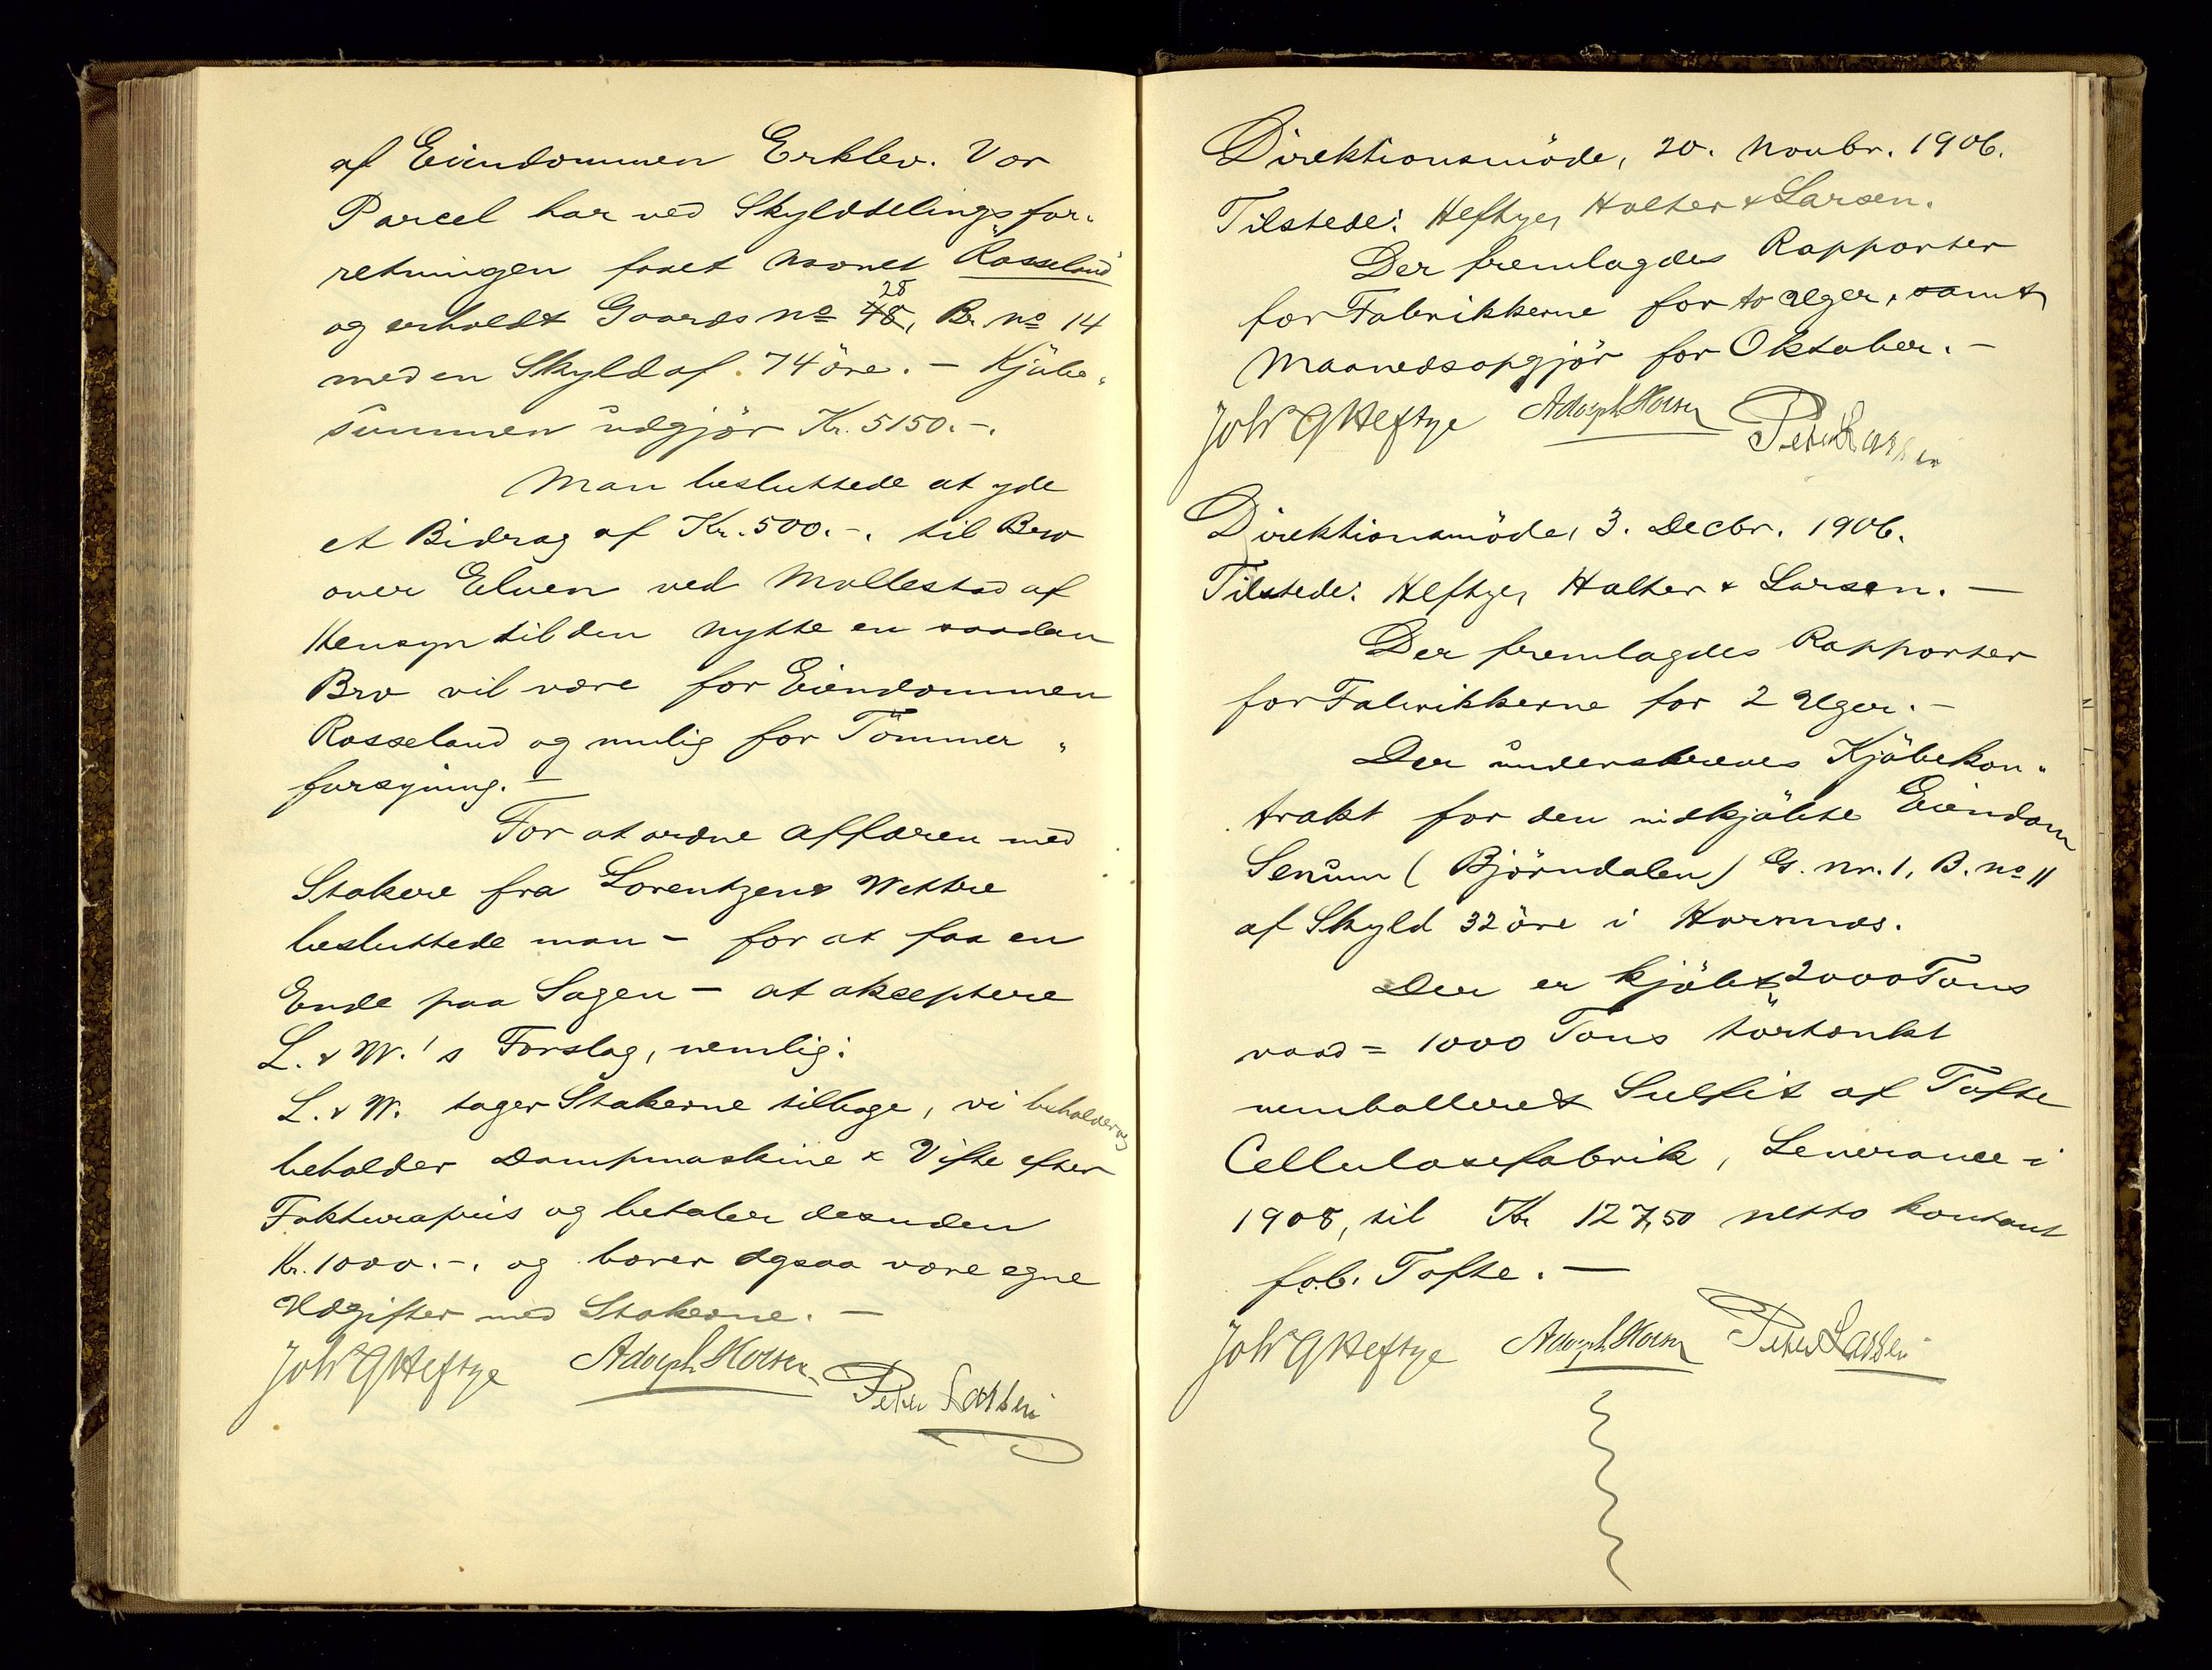 af Eiendommen Erklev. Vor
Parcel har ved Skylddelingsfor-
retningen faaet Navnet "Rosseland"
og erholdt Gaards No 48, 28 Br. No 14
med en Skyld af 74 öre. - Kjöbe-
summen udgjör Kr. 5150.-.
Man besluttede at yde
et Bidrag af Kr. 500.-. til Bro
over Elven ved Mollestad af
Hensyn til den Nytte en saadan
Bro vil være for Eiendommen
Rosseland og mulig for Tömmer-
forsyning. -
For at ordne Affæren med
Stokere fra Lorentzen & Wettre
besluttede man - for at faa en
Ende paa Sagen - at akseptere
L. & W.'s Forslag, nemlig:
L. & W. tager Stokerne tilbage, vi beholder og
beholder Dampmaskine & Vifte efter
Fakturapris og betaler desuden
Kr. 1000.-. og bærer ogsaa vore egne
Udgifter med Stokerne. -
Johs G Heftye Adolph Holter Peter Larsen
Direktionsmöde, 20. Novbr. 1906.
Tilstede: Heftye, Holter & Larsen.
Der fremlagdes Rapporter
for Fabrikkerne for to Uger, samt
Maanedsopgjör for Oktober. -
Johs G Heftye Adolph Holter Peter Larsen
Direktionsmöde, 3. Decbr. 1906.
Tilstede: Heftye, Holter & Larsen. -
Der fremlagdes Rapporter
for Fabrikkerne for 2 Uger. -
Der underskreves Kjöbekon-
trakt for den indkjöbte Eiendom
Senum (Björndalen) G. Nr. 1, B. No 11
af Skyld 32 öre i Hornnes.
Der er kjöbt 2000 Tons
vaad = 1000 Tons törtænkt
uemballeret Sulfit af Tofte
Cellulosefabrik, Leverance i
1908, til Kr 127,50 netto kontant
fob. Tofte. -
Johs G Heftye Adolph Holter Peter Larsen